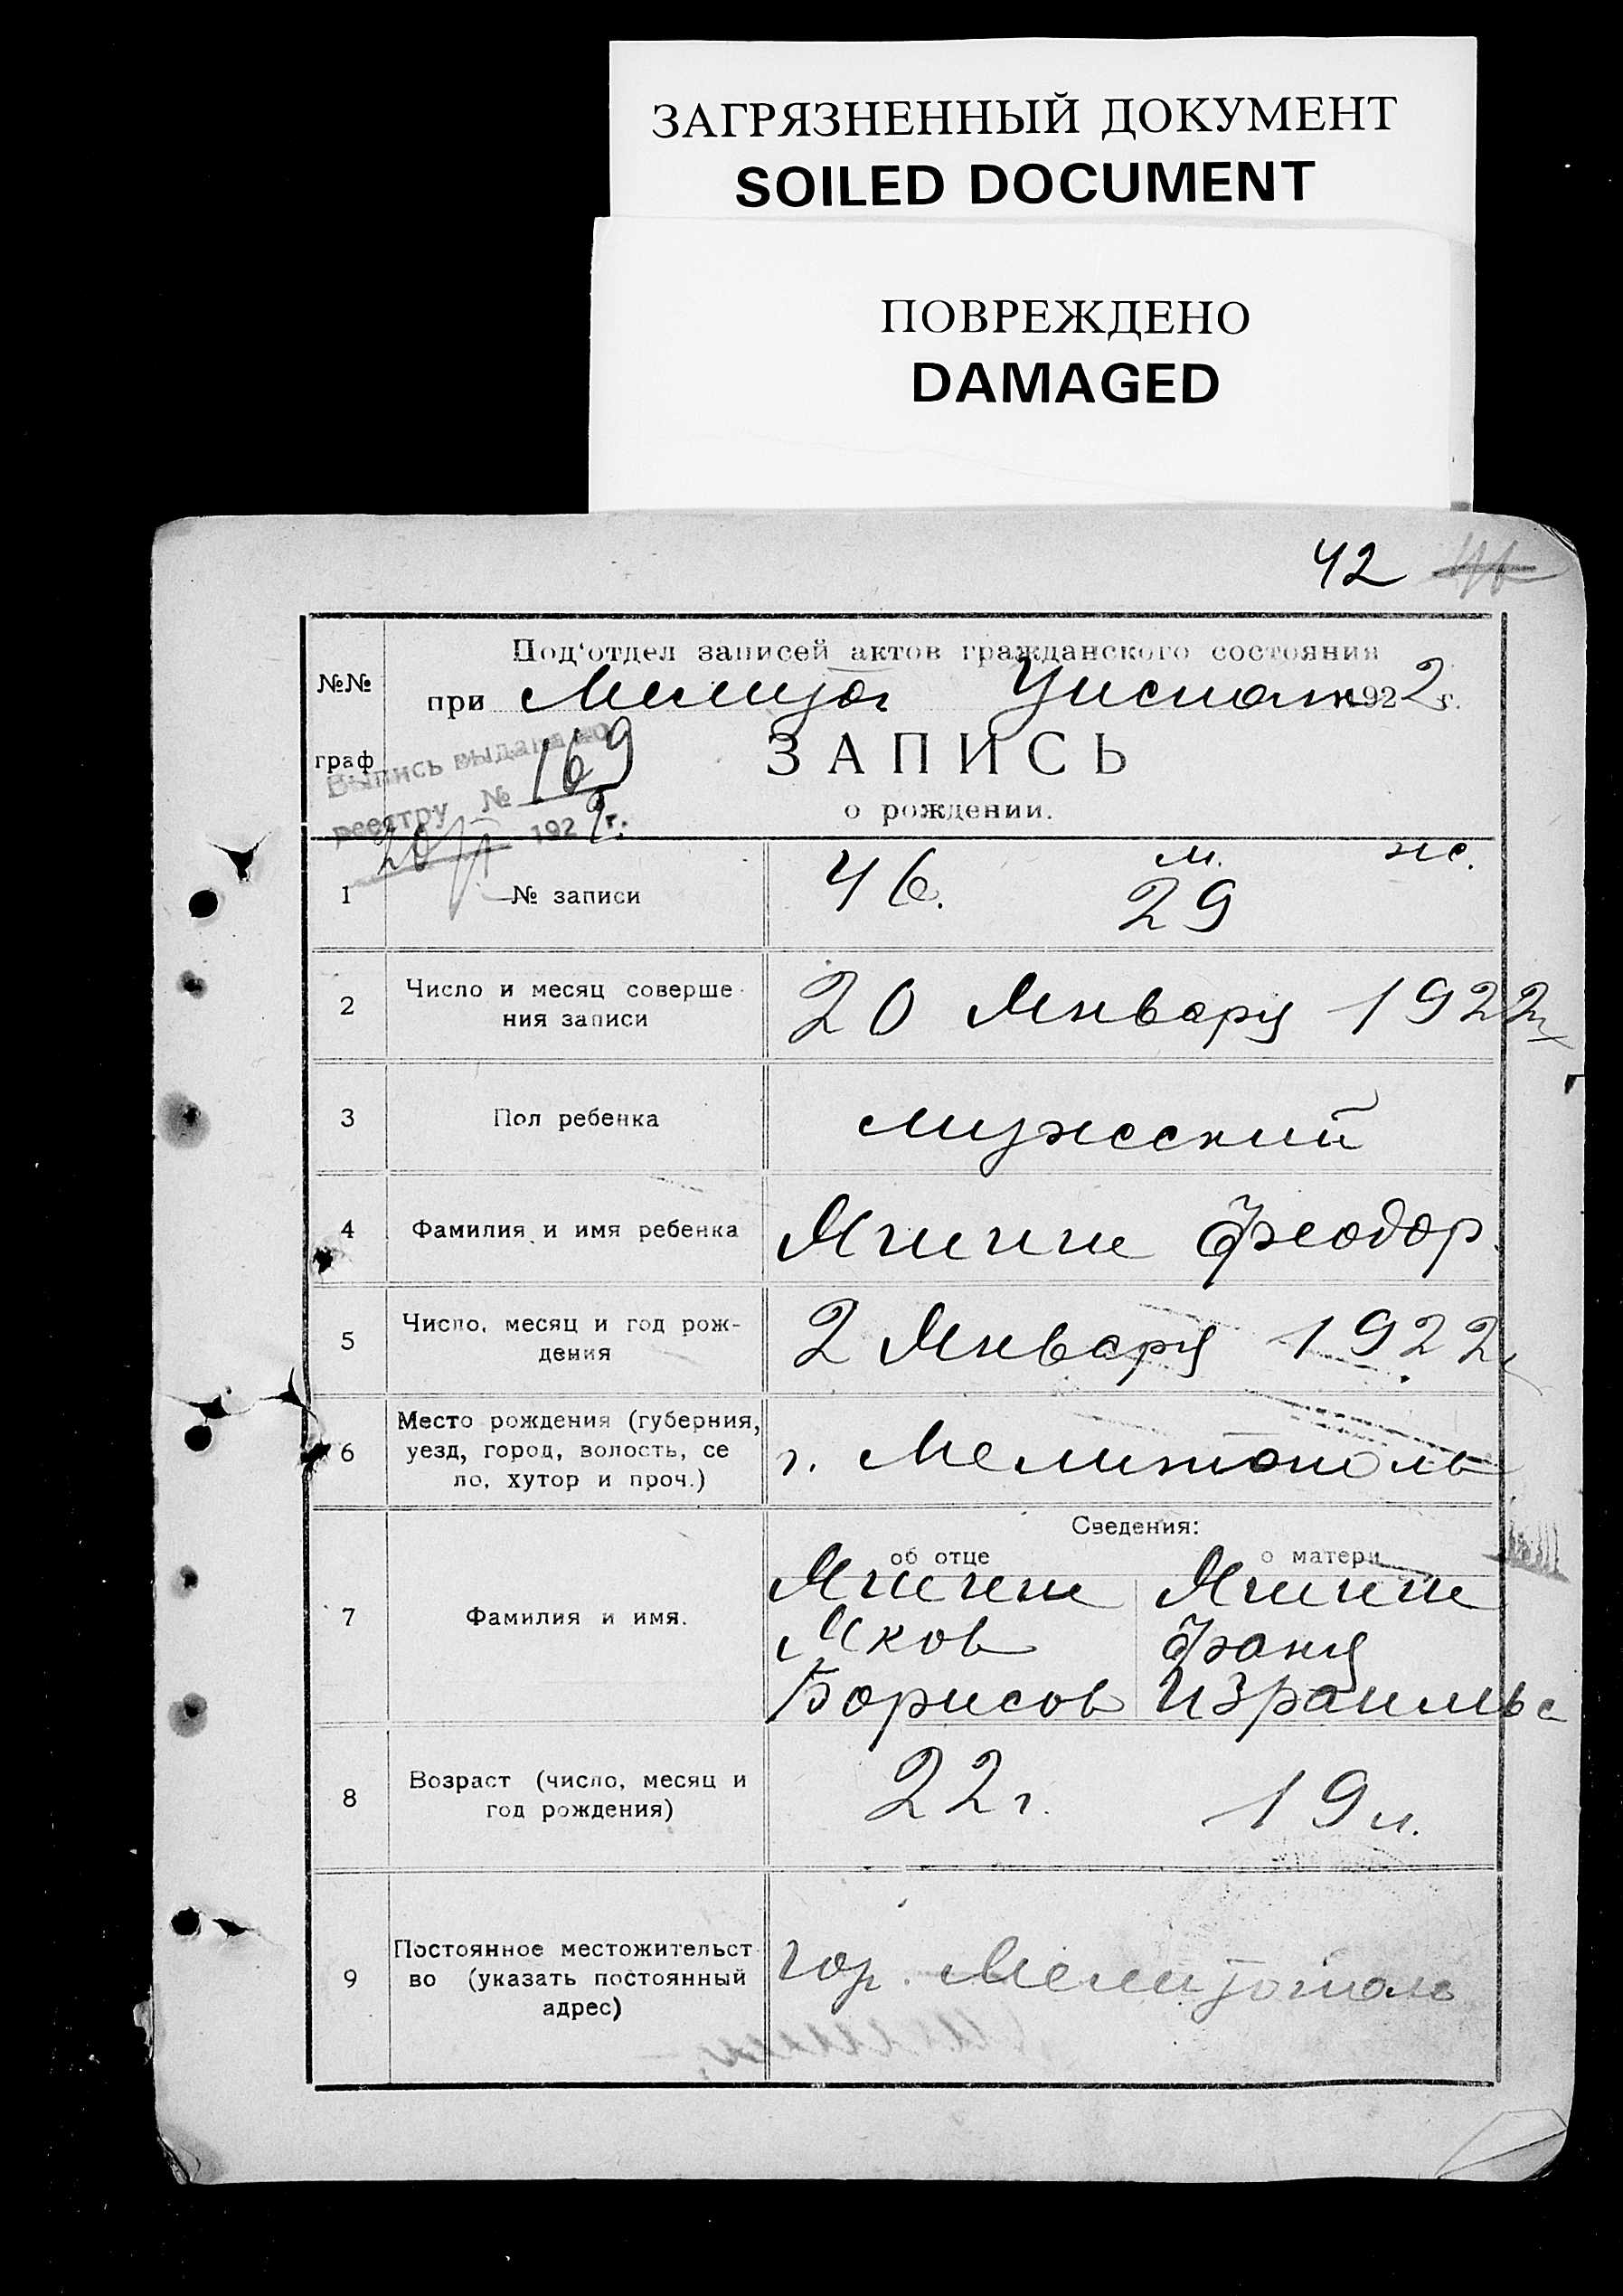 ЗАГРЯЗНЕННЫЙ ДОКУМЕНТ
SOILED DOCUMENT
ПОВРЕЖДЕНО
DAMAGED
42 46
№№ граф
Под‘отдел записей актов гражданского состояния
при Мелитоп Уисполк 1922 г.
Выпись выдана по
реестру № 169
192 г.
ЗАПИСЬ
о рождении.
1 № записи 46. м. 29 ж.
2 Число и месяц соверше-
ния записи 20 Января 1922
3 Пол ребенка мужеский
4 Фамилия и имя ребенка Феодор
5 Число, месяц и год рож-
дения 2 Января 1922
6 Место рождения (губерния,
уезд, город, волость, се
ло, хутор и проч.) г. Мелитополь
Сведения:
об отце о матери
7 Фамилия и имя.
Яков Фаня
Борисов Израильс
8 Возраст (число, месяц и
год рождения) 22 г. 19 л.
9 Постоянное местожительст
во (указать постоянный
адрес) гор. Мелитополь